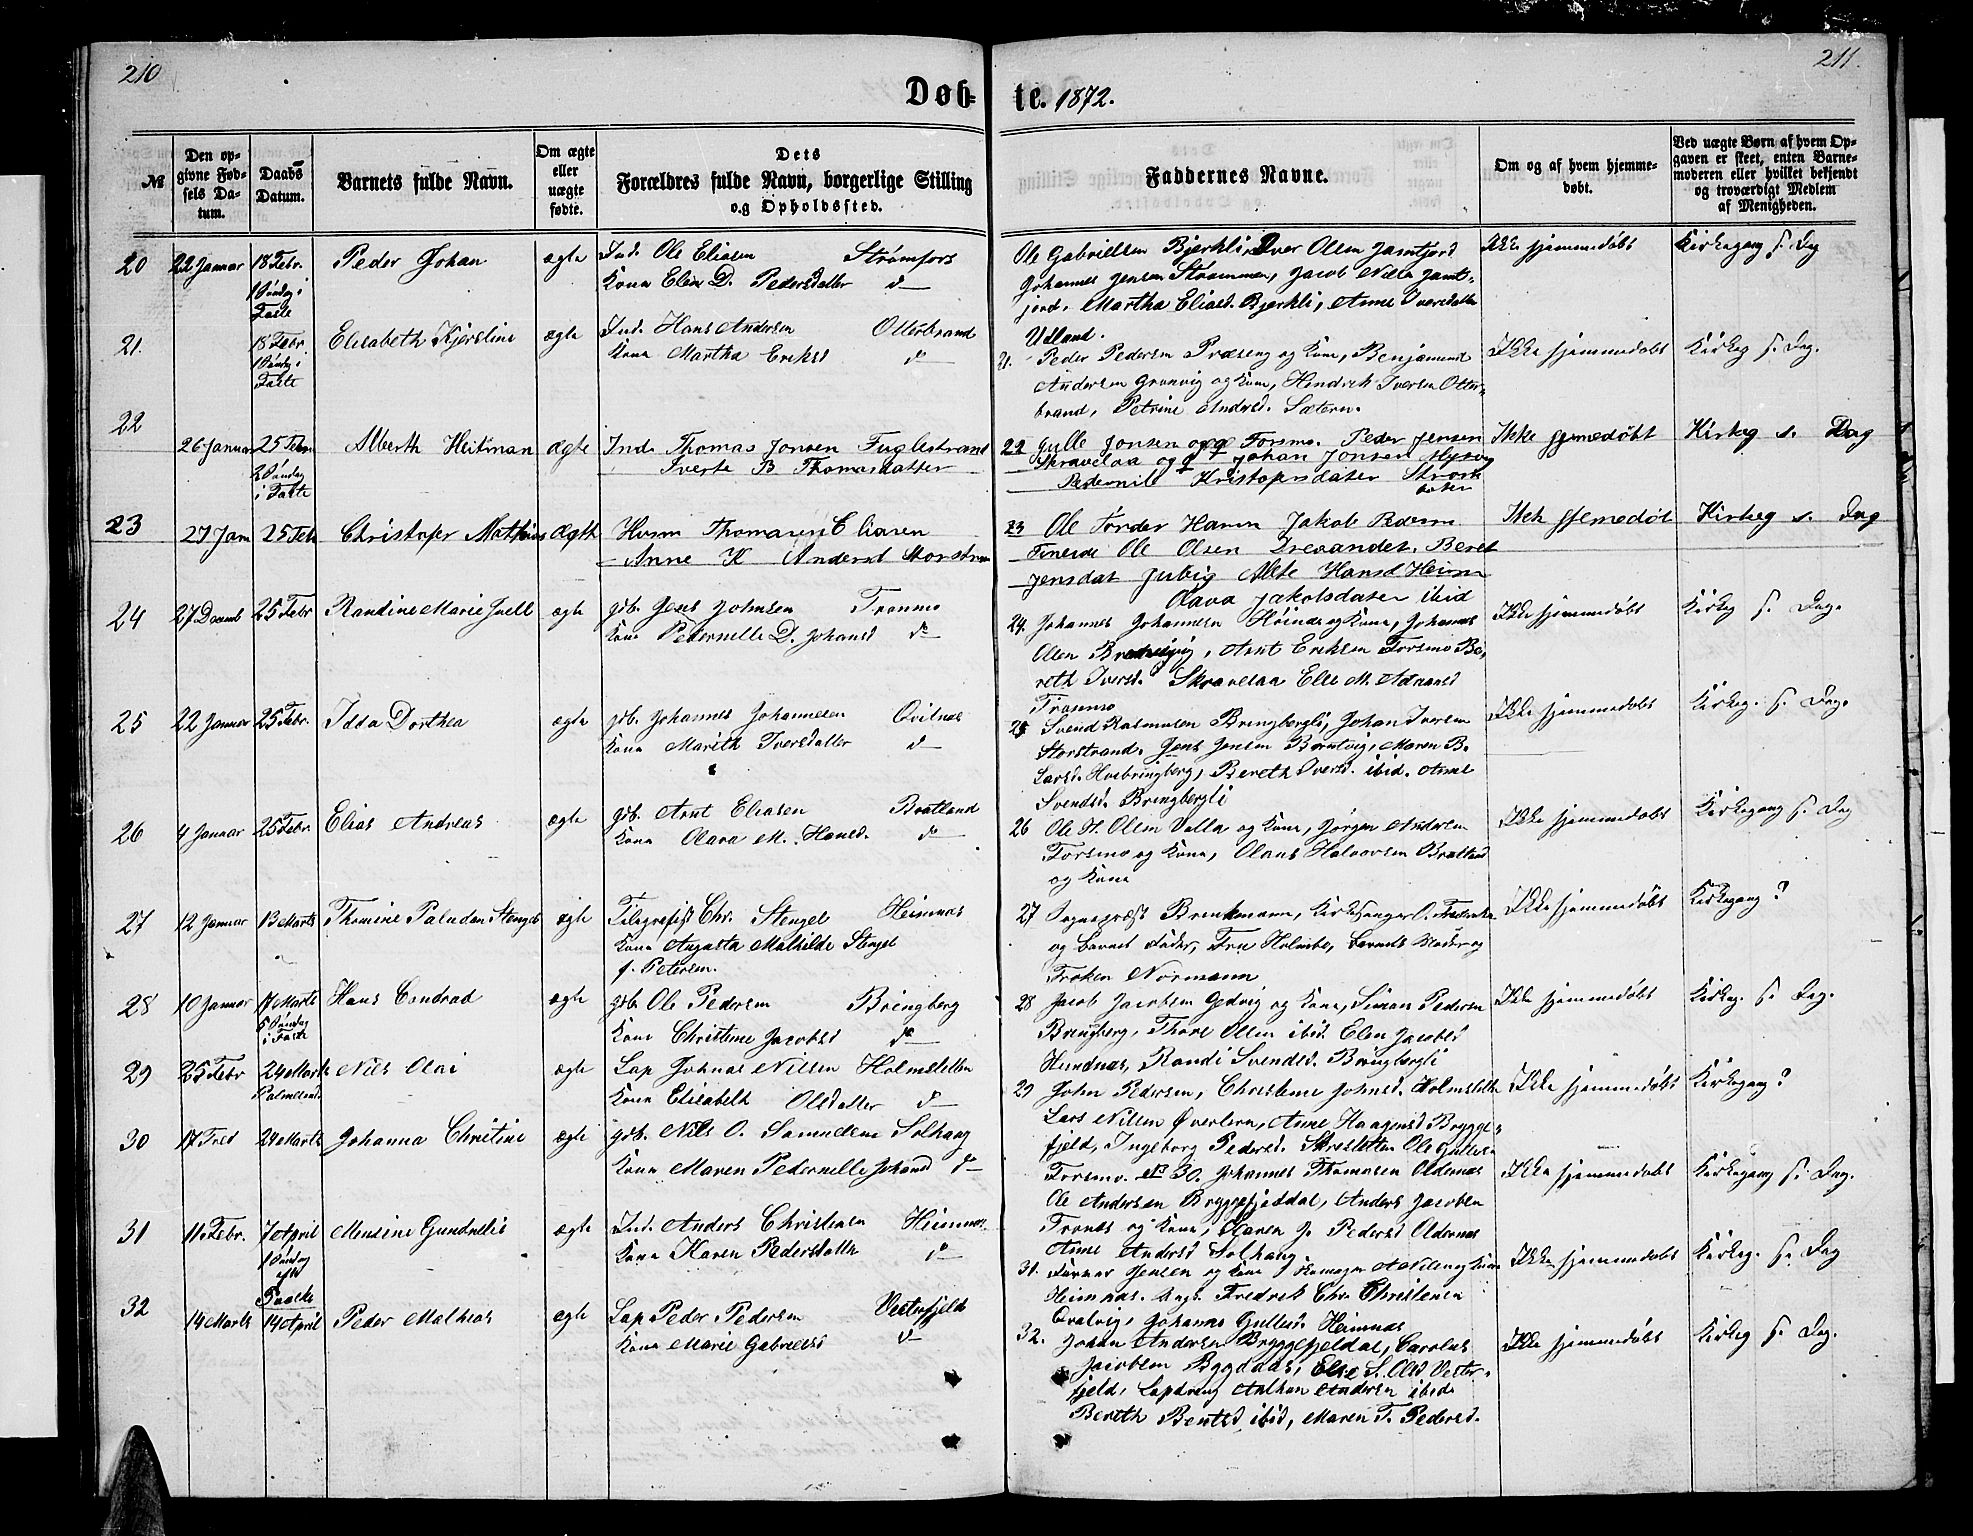 210
211.
Døb-
te. 1872.
№
Den op-
givne Fød-
sels Da-
tum.
Daabs
Datum.
Barnets fulde Navn.
Om ægte
eller
uægte
fødte.
Dets
Forældres fulde Navn, borgerlige Stilling
og Opholdssted.
Faddernes Navne.
Om og af hvem hjemme-
døbt.
Ved uægte Børn af hvem Op-
gaven er skeet, enten Barne-
moderen eller hvilket bekjendt
og troværdigt Medlem
af Menigheden.
20 22 Januar 18 Febr. Peder Johan ægte Ind. Ole Eliasen Strømfors
1 Søndag i
Faste
Kona Elen D. Pedersdatter do
Ole Gabrielsen Bjerkli, Iver Olsen Jamtjord
Johannes Jensen Strømmen, Jacob Nilsen Jamt-
jord, Martha Eliasd. Bjerkli, Anne Iversdatter
Utland.
Ikke hjemmedøbt Kirkegang s. Dag
21. 18 Febr. Elisabeth Kjerstine ægte Ind. Hans Andersen Otterbrand
1 Søndag i
Faste
Kona Martha Eriksd do
21. Peder Pedersen Præseng og Kone, Benjamins
Andersen Grønvig og Kone, Hendrik Iversen Otter-
brand, Petrine Andersd. Sætern.
Ikke hjemmedøbt Kirkeg s. Dag.
22 26 Januar 25 Febr Alberth Heitman ægte Ind. Thomas Jonsen Fuglestrand
2 Søndag
i Faste
Sverte B Thomasdatter
22 Gulle Jonsen og Forsmo. Peder Jensen
Skravelaa og Johan Jonsen
Pedernile Kristofersdater
Ikke hjemedøbt Kirkeg s. Dag
23 27 Jan 25 Feb Christofer Mathias Ægth Husm Thomas Eliasen
Anne K Andersd Storstran
23 Ole Tordes Hamn Jakob Pedersen
Ole Olsen Drevandet. Beret
Jensdat Mete Hansd
Olava Jakobsdater ibid
Ikke hjemedøt Kirkeg s. Dag
24 27 Decemb 25 Febr Randine Marie Juell ægte gdb. Jens Johnsen Fronmo
Kone Pedernelle D. Johansd do
24. Johannes Johannesen og Kone, Johannes
Olsen, Arnt Eriksen Forsmo Be-
reth Iversd. Skravelaa Else M. Adriansd
Ikke hjemmedøbt Kirkeg s. Dag.
25 22 Januar 25 Febr. Idda Dorthea ægte gdb. Johannes Johannesen Qvitnes
Kona Marith Iversdatter do
25 Svend Rasmusen Bringbergli, Johan Iversen
Storstrand, Jens Jensen, Maren B.
Larsd., Bereth Iversd. ibid. Anne
Svendsd. Bringbergli
Ikke hjemmedøbt Kirkeg. s. Dag.
26 4 Januar 25 Febr. Elias Andreas ægte gdb. Arnt Eliasen Bratland
Kona Olava M. Hansd. do
26 Ole H. Olsen Valla og Kone, Jørgen Andersen
Forsmo og Kone, Olaus Halvorsen Bratland
og Kone
Ikke hjemmedøbt Kirkegang s. Dag
27 12 Januar 13 Marts Thomine Paludan Stengel ægte Telegrafist Chr. Stengel Hemnes
Kona Augusta Mathilde Stengel
f. Petersen.
27 Sognepræst Brinkmann, Kirkesanger O.
og Barnets Fader, Fru Holmbo, Barnets Moder og
Frøken Normann
Ikke hjemmedøbt Kirkegang?
28 10 Januar 17 Marts Hans Condrad ægte gdb. Ole Pedersen Bringberg
5 Søndag
i Faste
Kone Christine Jacobsd do
28 Jacob Jacobsen Gedvig og Kone, Simon Pedersen
Bringberg, Thore Olsen ibid. Elen Jacobsd
Hundnes, Randi Svendsd. Bringbergli
Ikke hjemmedøbt Kirkeg. s. Dag.
29 25 Febr 24 Marts Nils Olai ægte Lap Johnas Nilsen Holmsletten
Palmesønd
Kona Elisabeth Olsdatter do
29 John Pedersen, Christine Johnsd. Holmslette
Lars Nilsen Øverlern, Anne Haagensd Brygge-
fjeld, Ingeborg Pedersd. Ole Gullesen
Forsmo.
Ikke hjemmedøbt Kirkegang?
30 17 24 Marts Johanna Christine ægte gdb. Nils O. Samuelsen Solhaug
Kona Maren Pedernelle Johansd do
No 30. Johannes Thomasen Oldernes
Ole Andersen Bryggefjeddal, Anders Jacobsen
Fronæs og Kone, Karen J. Pedersd Oldernæs
Anne Andersd Solhaug
Ikke hjemmedøbt Kirkegang s. Dag.
31 11. Febr. 7 April Mensine Gundnelie ægte Ind. Anders Christensen Hemnes
1 Søndag
eft
Paaske
Kona Karen Pedersdatter do
31. Jensen og Kone og Kone
Hemnæs. Ung. Fredrik Chr. Christensen
Qvalvig, Johanna Gullesd. Hemnæs
Ikke hjemmedøbt Kirkeg. s. Dag
32 14 Marts 14 April Peder Mathias ægte Lap Peder Pedersen Vesterfjeld
Kona Marie Gabrielsd do
32. Johan Andersen Bryggefjeldal, Carolus
Jacobsen Bygdaas, Else S. Olsd Vester-
fjeld, Lapdreng Andersen ibid
Bereth Bentsd ibid, Maren T. Pedersd.
Ikke hjemmedøbt Kirkeg s. Dag.